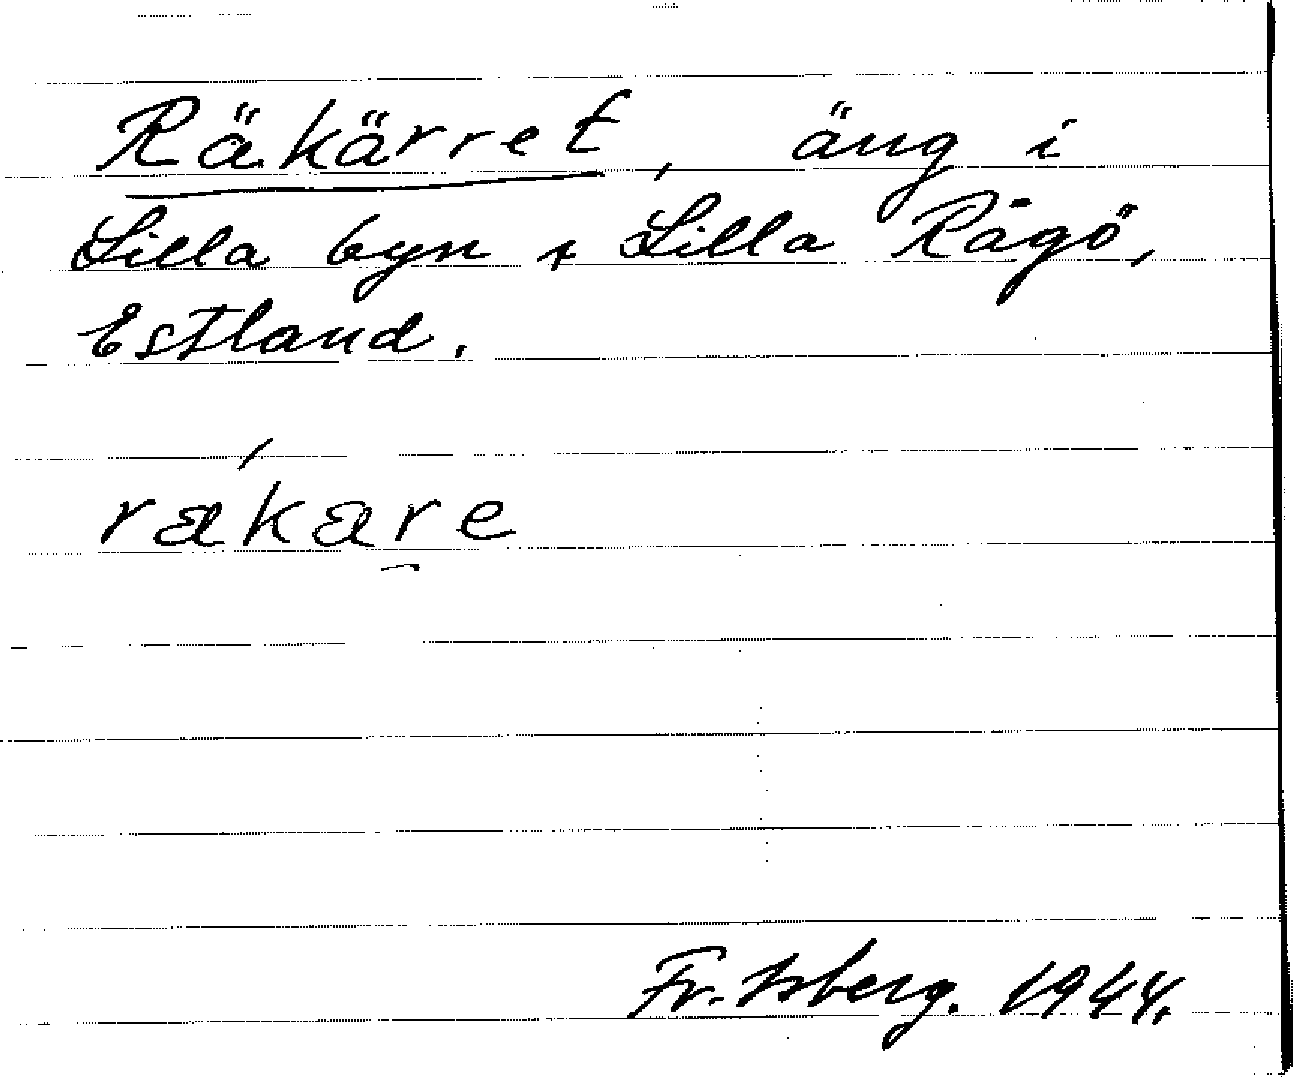 Räkärret, äng i
Lilla byn + Lilla Rågö,
Estland.
rækære
Fr. Isberg. 1944.